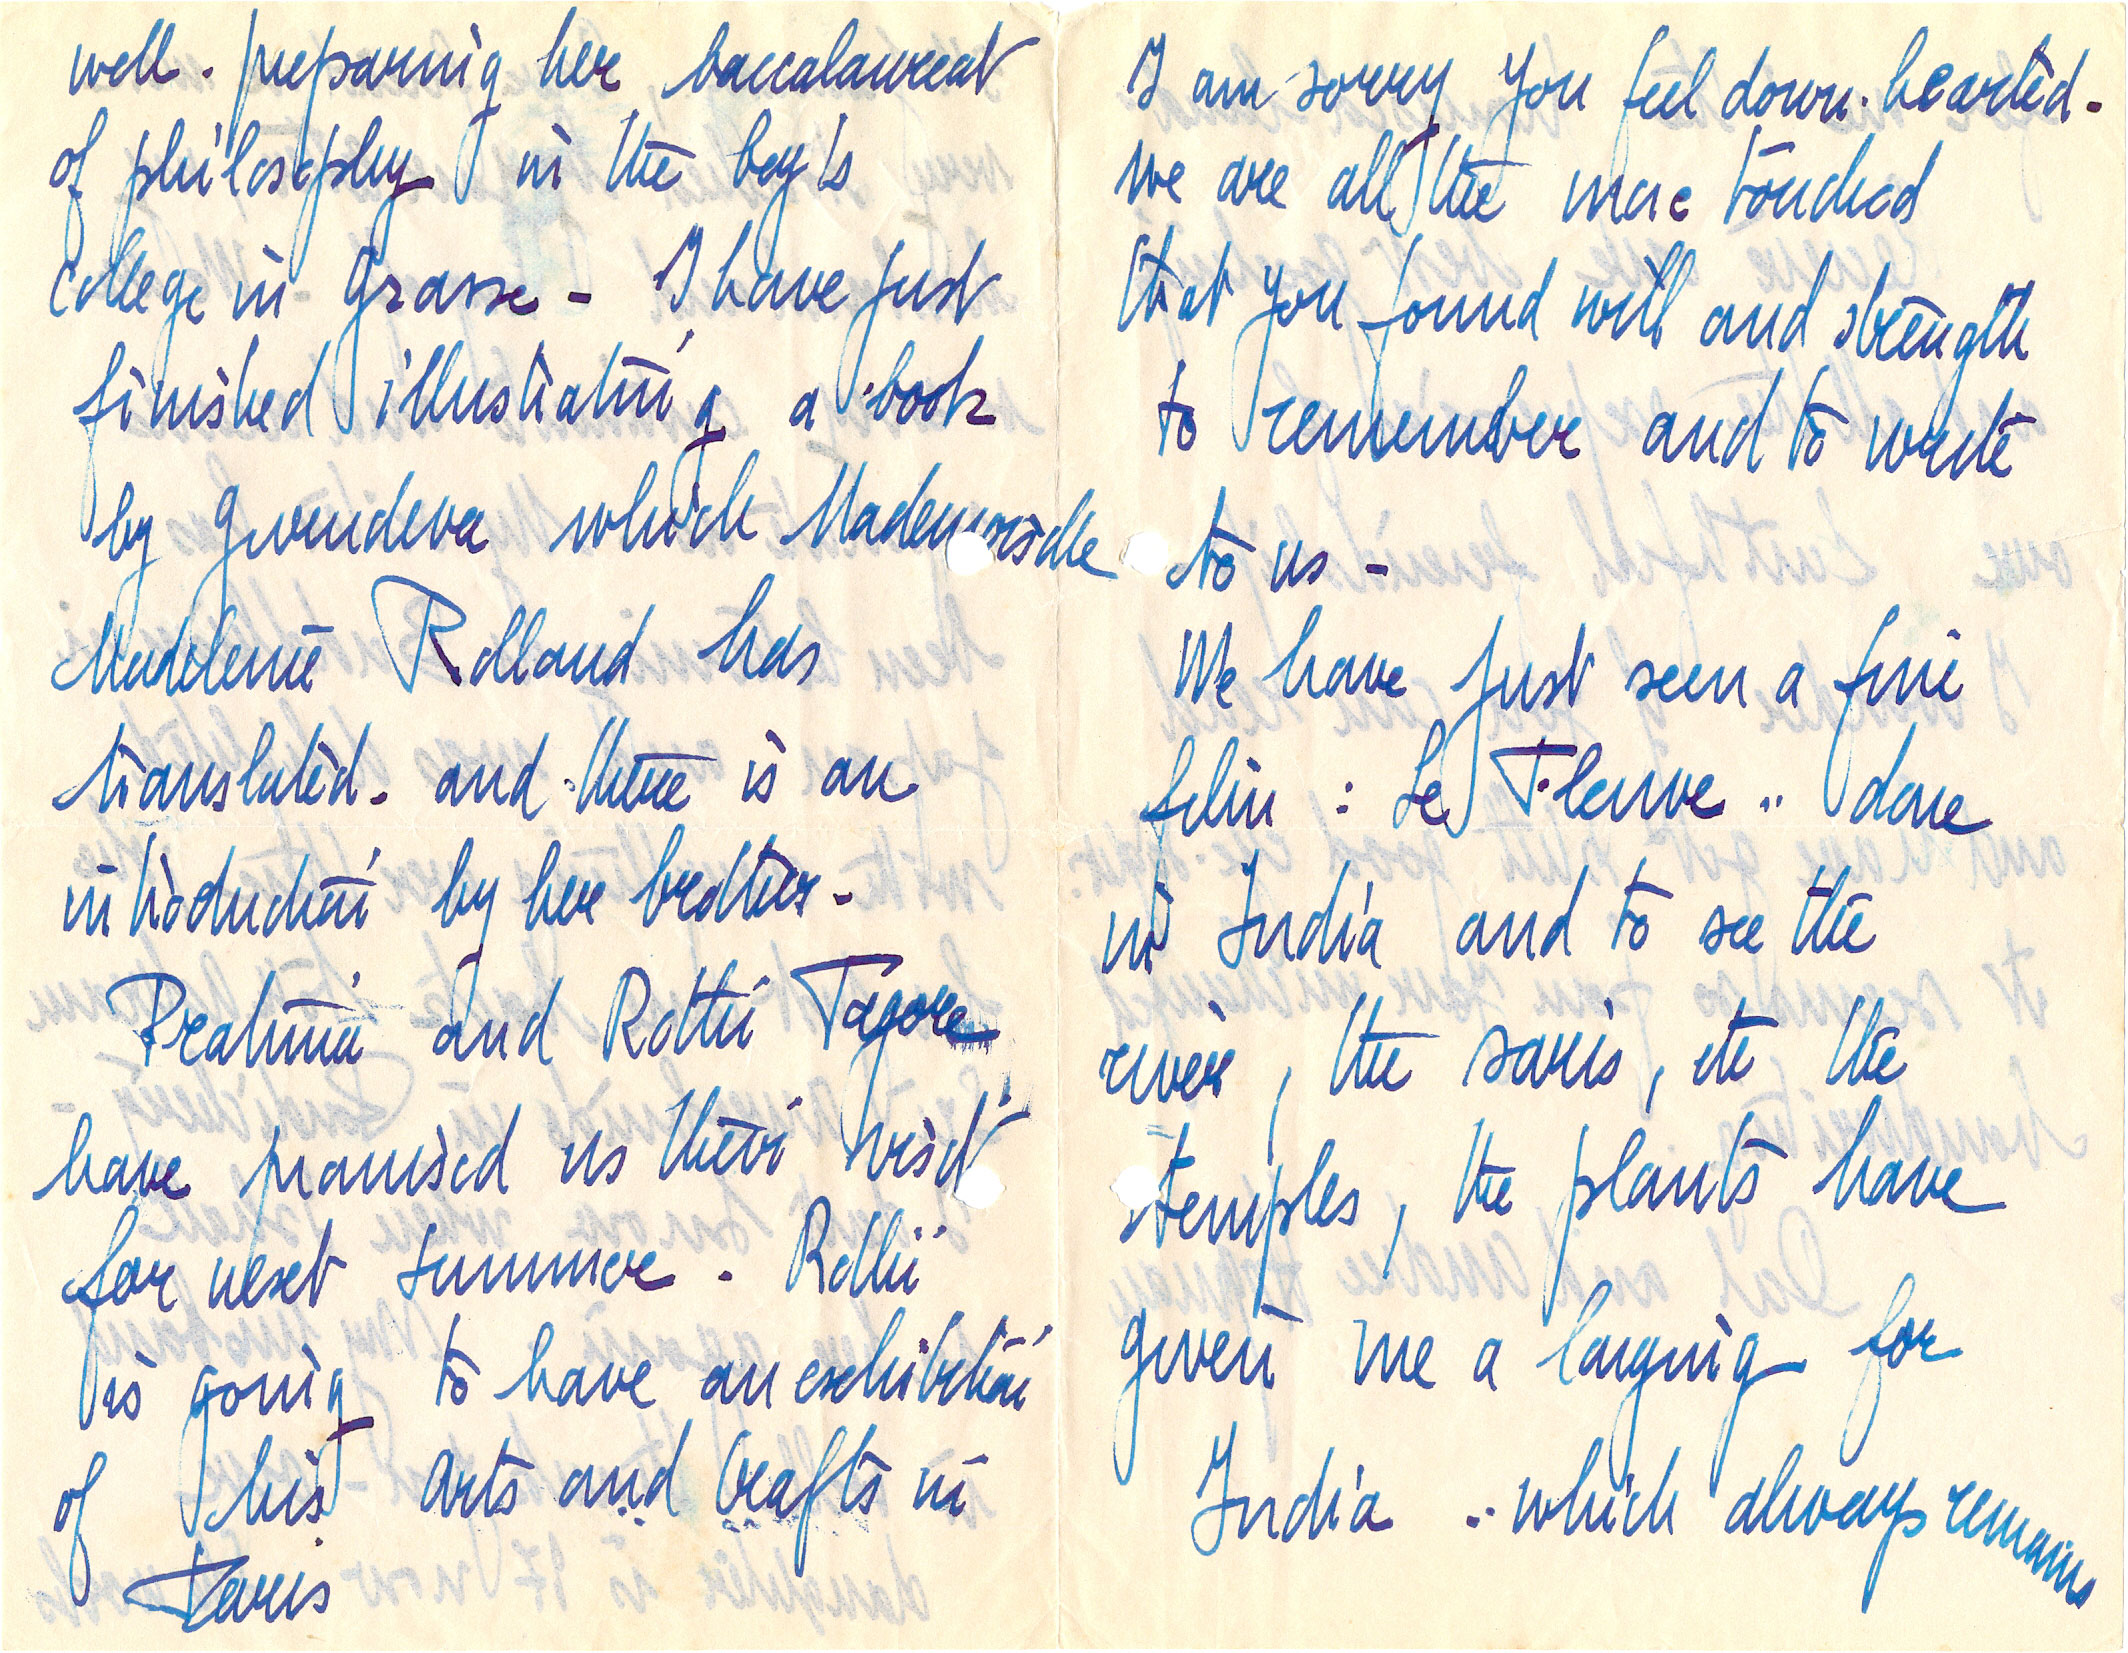 well. preparing her baccalaureat
of philosophy in the boy's
college in Grasse - I have just
finished illustrating a book
by Gurudeva which Mademoiselle
Madeleine Rolland has
translated - and there is an
introduction by her brother -
Pratima and Rothi Tagore
have promised us their visit
for next summer. Rothi
is going to have an exhibition
of his arts and crafts in
Paris
I am sorry you feel down-hearted -
we are all the more touched
that you found will and strength
to remember and to write
to us -
We have just seen a fine
film : Le Fleuve .. done
in India and to see the
river, the saris, etc the
temples, the plants have
given me a longing for
India .. which always remains